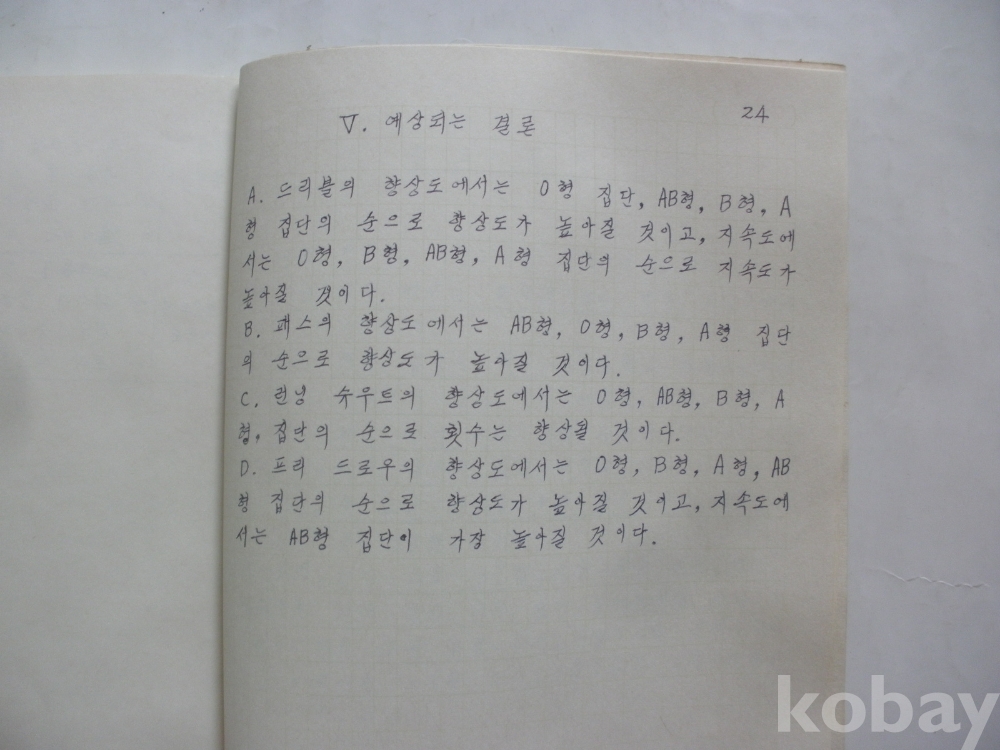 24
Ⅴ. 예상되는 결론
A. 드리블의 향상도에서는 O형 집단, AB형, B형, A
형 집단의 순으로 향상도가 높아질 것이고, 지속도에
서는 O형, B형, AB형, A형 집단의 순으로 지속도가
높아질 것이다.
B. 패스의 향상도에서는 AB형, O형, B형, A형 집단
의 순으로 향상도가 높아질 것이다.
C. 런닝 슈우트의 향상도에서는 O형, AB형, B형, A
형, 집단의 순으로 횟수는 향상될 것이다.
D. 프리 드로우의 향상도에서는 O형, B형, A형, AB
형 집단의 순으로 향상도가 높아질 것이고, 지속도에
서는 AB형 집단이 가장 높아질 것이다.
kobay